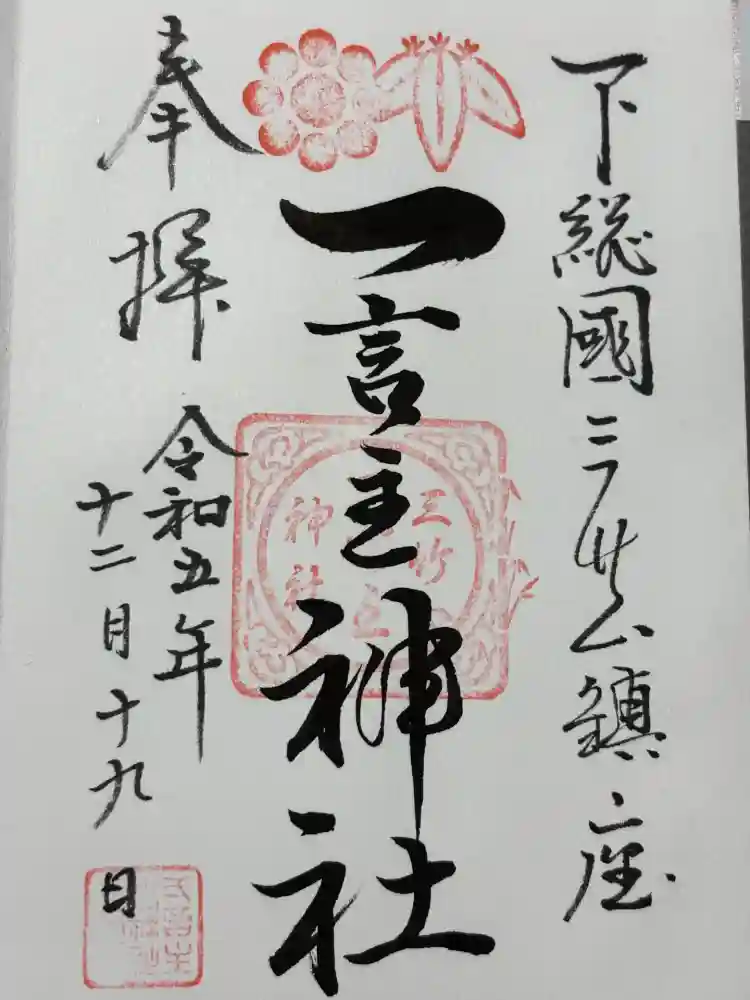 下総國三竹山鎮座
一言主神社
三竹
神社
奉拝
令和五年
十二月十九日